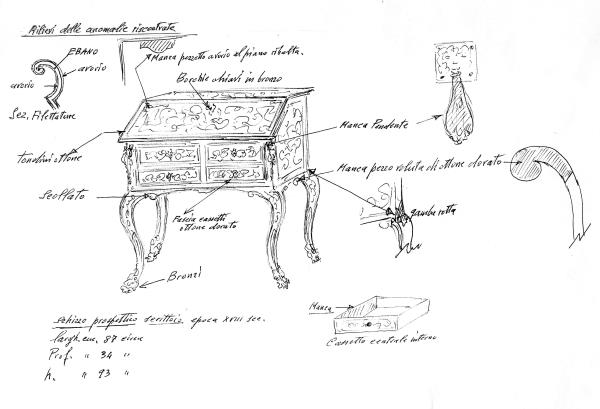 Rilievi delle anomalie riscontrate
EBANO
avorio
avorio
Sez. Filettature
Manca pezzetto avorio al piano ribalta.
Borchie chiavi in bronzo
Manca Pendente
Tondini ottone
Manca pezzo voluta di ottone dorato
Scollato
Fascia cassetti
ottone dorato
gamba rotta
Bronzi
schizzo prospettico scrittoio, epoca XVIII sec.
largh. cm. 87 circa
Prof. " 34 "
h. " 93 "
Manca
Cassetto centrale interno